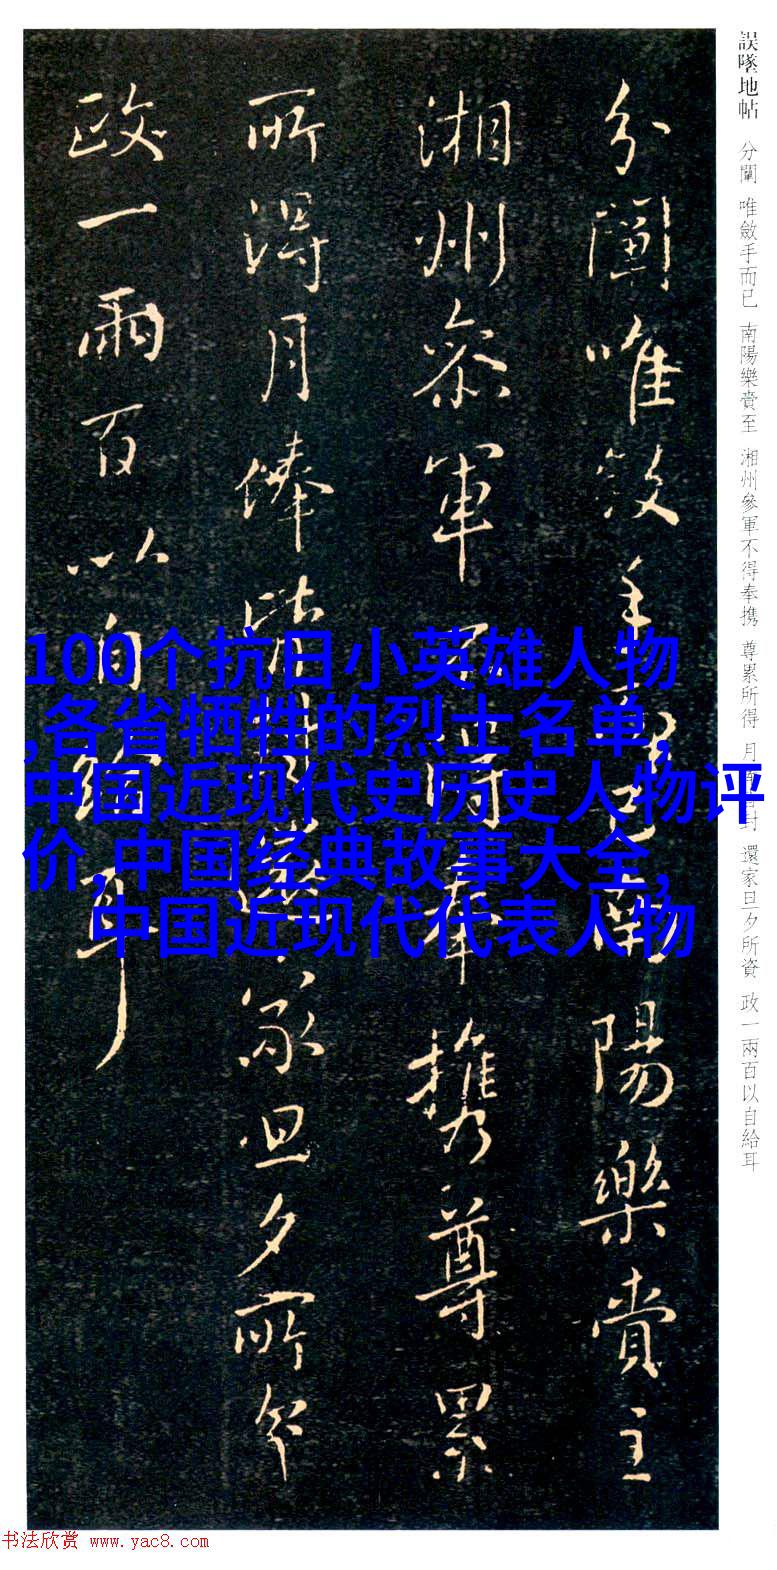 誤墜地帖 分闡 唯斂手而已 南陽樂賞至 湘州參軍不得奉携 尊累所得 月俸皆封 還家旦夕所資 政一兩百以自給耳
分闡唯斂手而已南陽樂賞至
湘州參軍不得奉携尊累
所得月俸皆封還家旦夕所資
政一兩百以自給耳
100个抗日小英雄人物
,各省牺牲的烈士名单,
中国近现代史历史人物评
价,中国经典故事大全,
中国近现代代表人物
书法欣赏 www.yac8.com